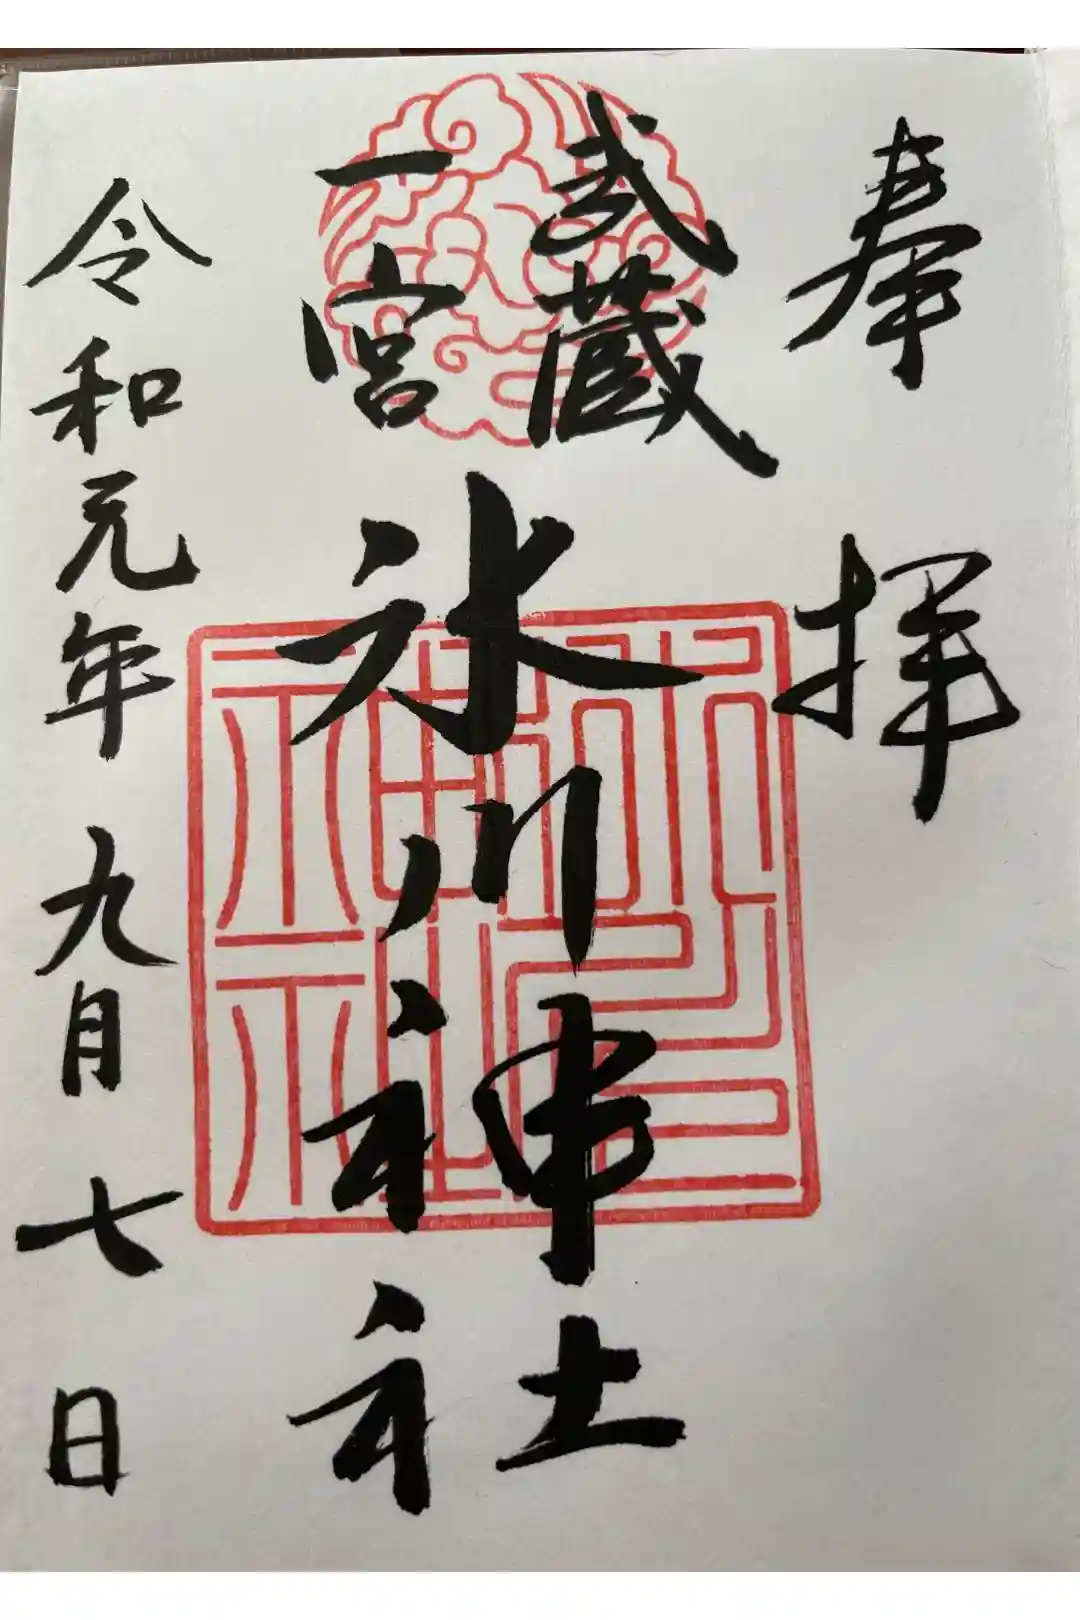 奉拝
武蔵
一宮
氷川神社
令和元年九月七日
氷川神社